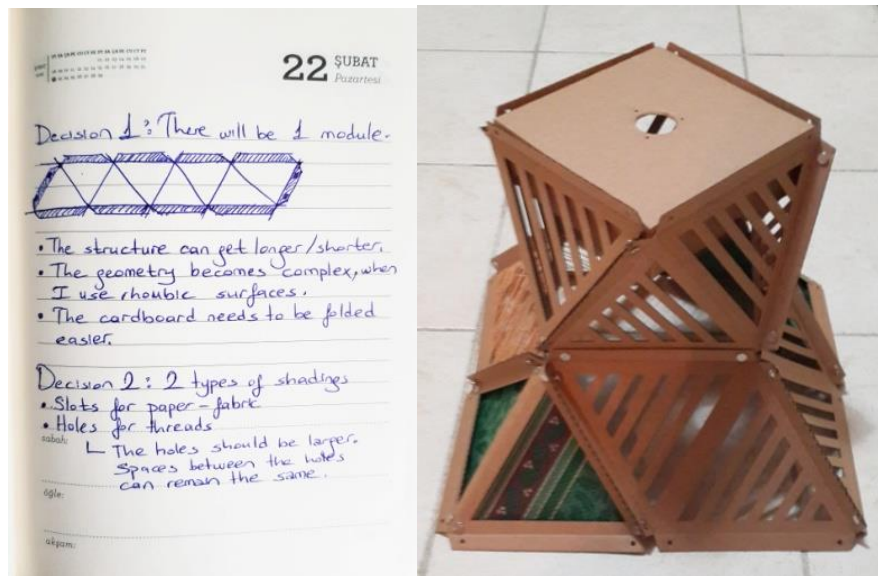 22 ŞUBAT
Pazartesi
Decision 1: There will be 1 module.
• The structure can get longer/shorter.
• The geometry becomes complex, when
I use rhombic surfaces.
• The cardboard needs to be folded
easier.
Decision 2: 2 types of shadings
• Slots for paper-fabric
• Holes for threads
sabah:
The holes should be larger.
Spaces between the holes
can remain the same.
öğle:
akşam: